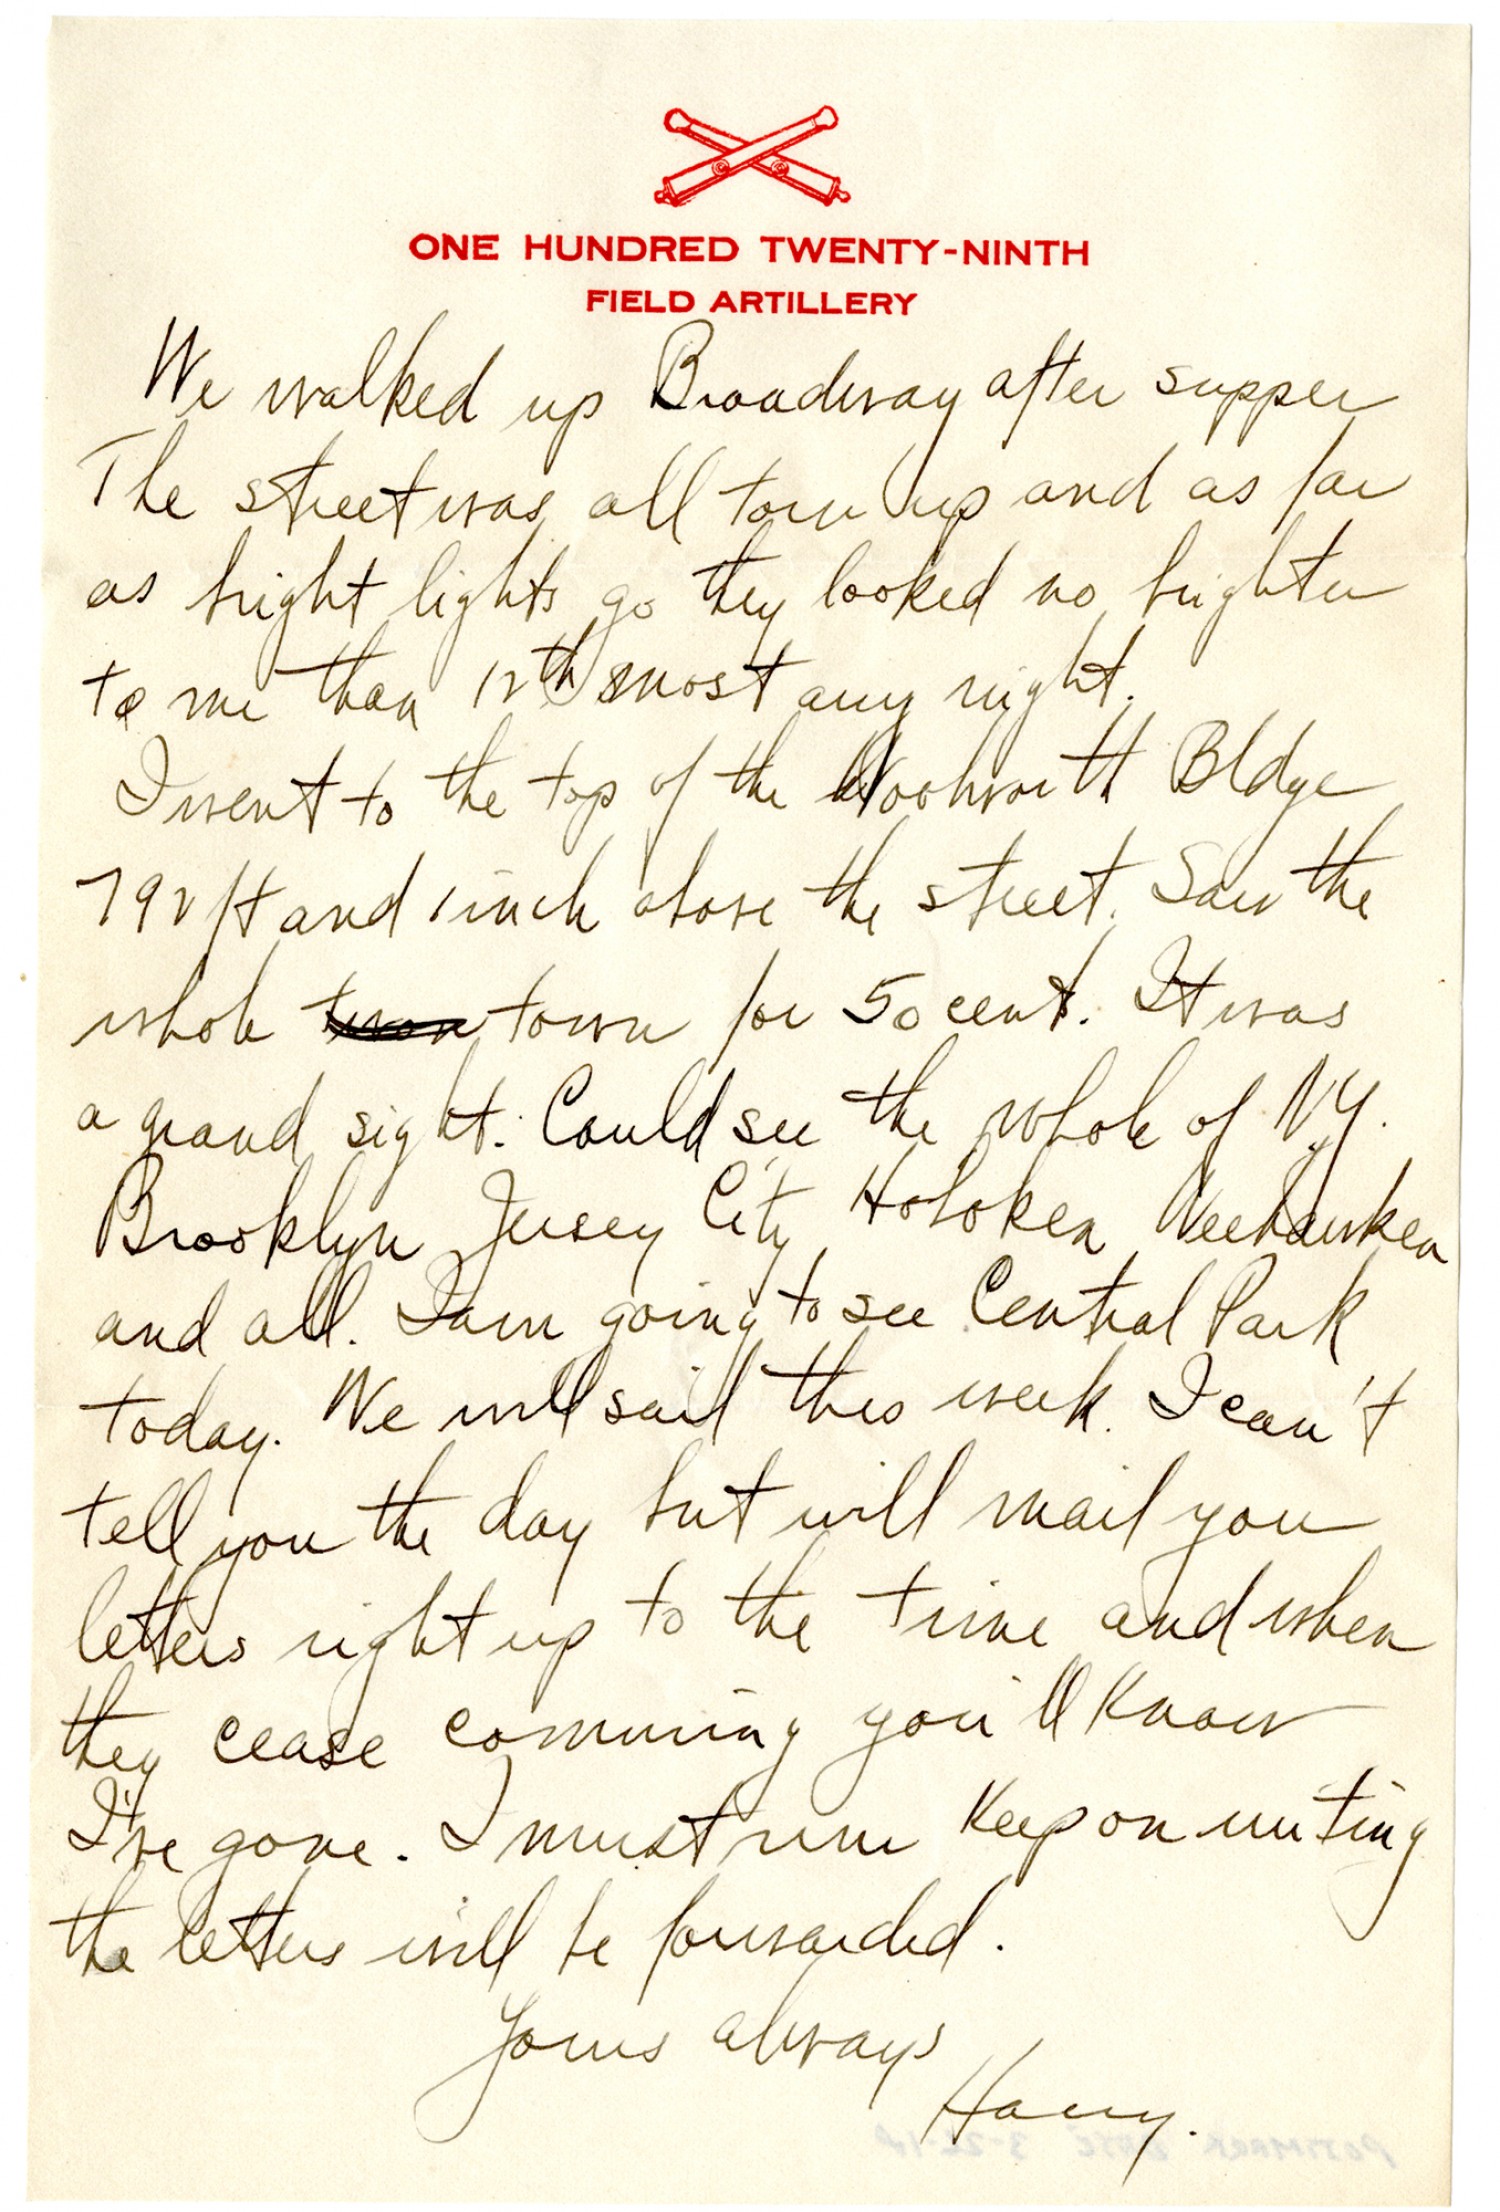 ONE HUNDRED TWENTY-NINTH
FIELD ARTILLERY
We walked up Broadway after supper
The street was all torn up and as far
as bright lights go they looked no brighter
to me than 12th most any night.
I went to the top of the Woolworth Bldge
792 ft and 1 inch above the street. Saw the
whole town for 50 cent. It was
a grand sight. Could see the whole of N.Y.
Brooklyn Jersey City, Hoboken, Weehawken
and all. I am going to see Central Park
today. We will sail this week. I can't
tell you the day but will mail you
letters right up to the time and when
they cease comming you'll know
I've gone. I must run Keep on writing
the letters will be forwarded.
Yours always
Harry.
POSTMARK DATE 3-22-18